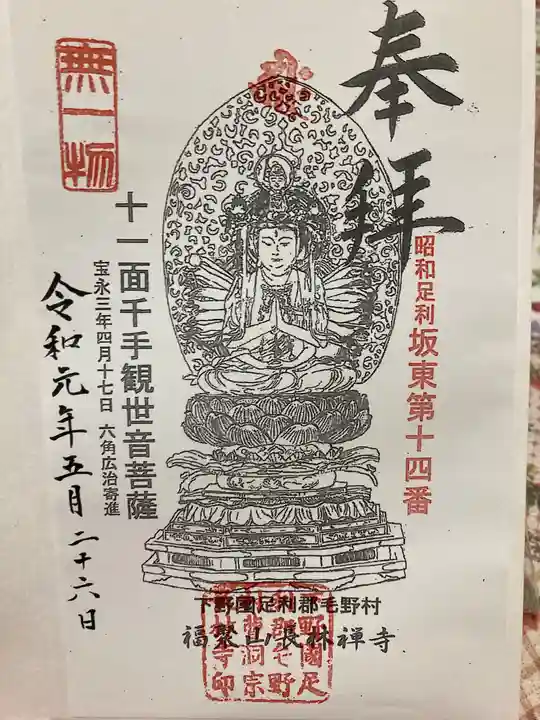 奉拝
昭和足利坂東第十四番
無一物
十一面千手観世音菩薩
宝永三年四月十七日 六角広治寄進
令和元年五月二十六日
下野國足利郡毛野村
福聚山長林禅寺